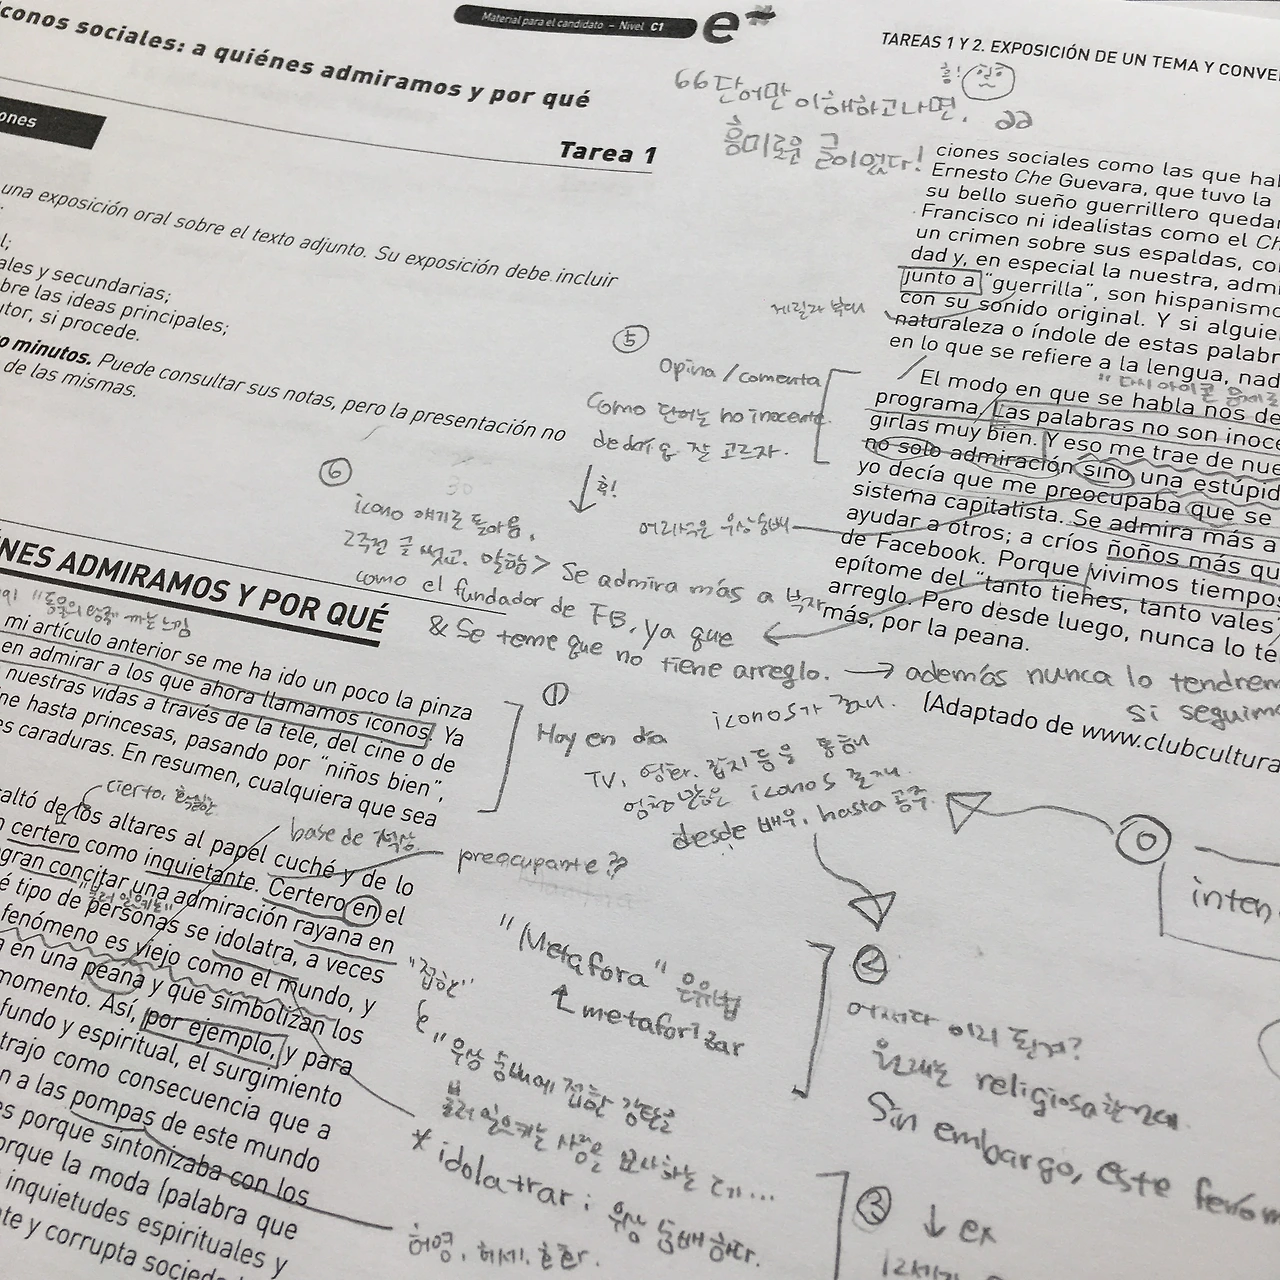 conos sociales: a quiénes admiramos y por qué
Material para el candidato – Nivel C1
e
ones
Tarea 1
una exposición oral sobre el texto adjunto. Su exposición debe incluir
l;
ales y secundarias;
bre las ideas principales;
utor, si procede.
o minutos. Puede consultar sus notas, pero la presentación no
de las mismas.
NES ADMIRAMOS Y POR QUÉ
mi artículo anterior se me ha ido un poco la pinza
en admirar a los que ahora llamamos iconos. Ya
nuestras vidas a través de la tele, del cine o de
ne hasta princesas, pasando por "niños bien",
es caraduras. En resumen, cualquiera que sea
cierto,
altó de los altares al papel cuché y de lo
certero como inquietante. Certero en el
gran concitar una admiración rayana en
é tipo de personas se idolatra, a veces
fenómeno es viejo como el mundo, y
en una peana y que simbolizan los
momento. Así, por ejemplo, y para
fundo y espiritual, el surgimiento
trajo como consecuencia que a
n a las pompas de este mundo
es porque sintonizaba con los
orque la moda (palabra que
inquietudes espirituales y
te y corrupta socieda
TAREAS 1 Y 2. EXPOSICIÓN DE UN TEMA Y CONVE
흥!
66단어만 이해하고나면,
흥미로운 글이었다!
ciones sociales como las que ha
Ernesto Che Guevara, que tuvo la
su bello sueño guerrillero queda
Francisco ni idealistas como el Ch
un crimen sobre sus espaldas, co
dad y, en especial la nuestra, admi
junto a "guerrilla", son hispanismo
con su sonido original. Y si alguie
naturaleza o índole de estas palabr
en lo que se refiere a la lengua, nad
게릴라 부대
El modo en que se habla nos de
programa. Las palabras no son inoce
girlas muy bien. Y eso me trae de nue
no solo admiración sino una estúpid
yo decía que me preocupaba que se
sistema capitalista. Se admira más a
ayudar a otros; a críos ñoños más qu
de Facebook. Porque vivimos tiempos
epítome del "tanto tienes, tanto vales"
arreglo. Pero desde luego, nunca lo te
más, por la peana.
(Adaptado de www.clubcultura
⑤
Opina / comenta
Como 단어는 no inocente
잘 고르자.
흑!
⑥
icono 얘기로 돌아옴,
2주전 글 썼고. 말함> Se admira más a
como el fundador de FB, ya que
& Se teme que no tiene arreglo. → además nunca lo tendrem
si seguimo
어리석은 우상숭배
①
Hoy en día iconos가 존재.
TV, 영화, 잡지 등을 통해
엄청 많은 iconos 존재.
desde 배우, hasta 공주.
base de 석상
preocupante??
"Metáfora" 은유법
↑ metaforizar
"접한"
"우상 숭배에 접한 감탄을
불러 일으키는 사람을 묘사하는 데가...
* idolatrar ; 우상 숭배하다.
허영, 허세, 혼란.
⓪
inten
②
어쩌다 이리 된거?
원래는 religiosa한건데.
Sin embargo, este fenóm
③ ↓ ex
12세기